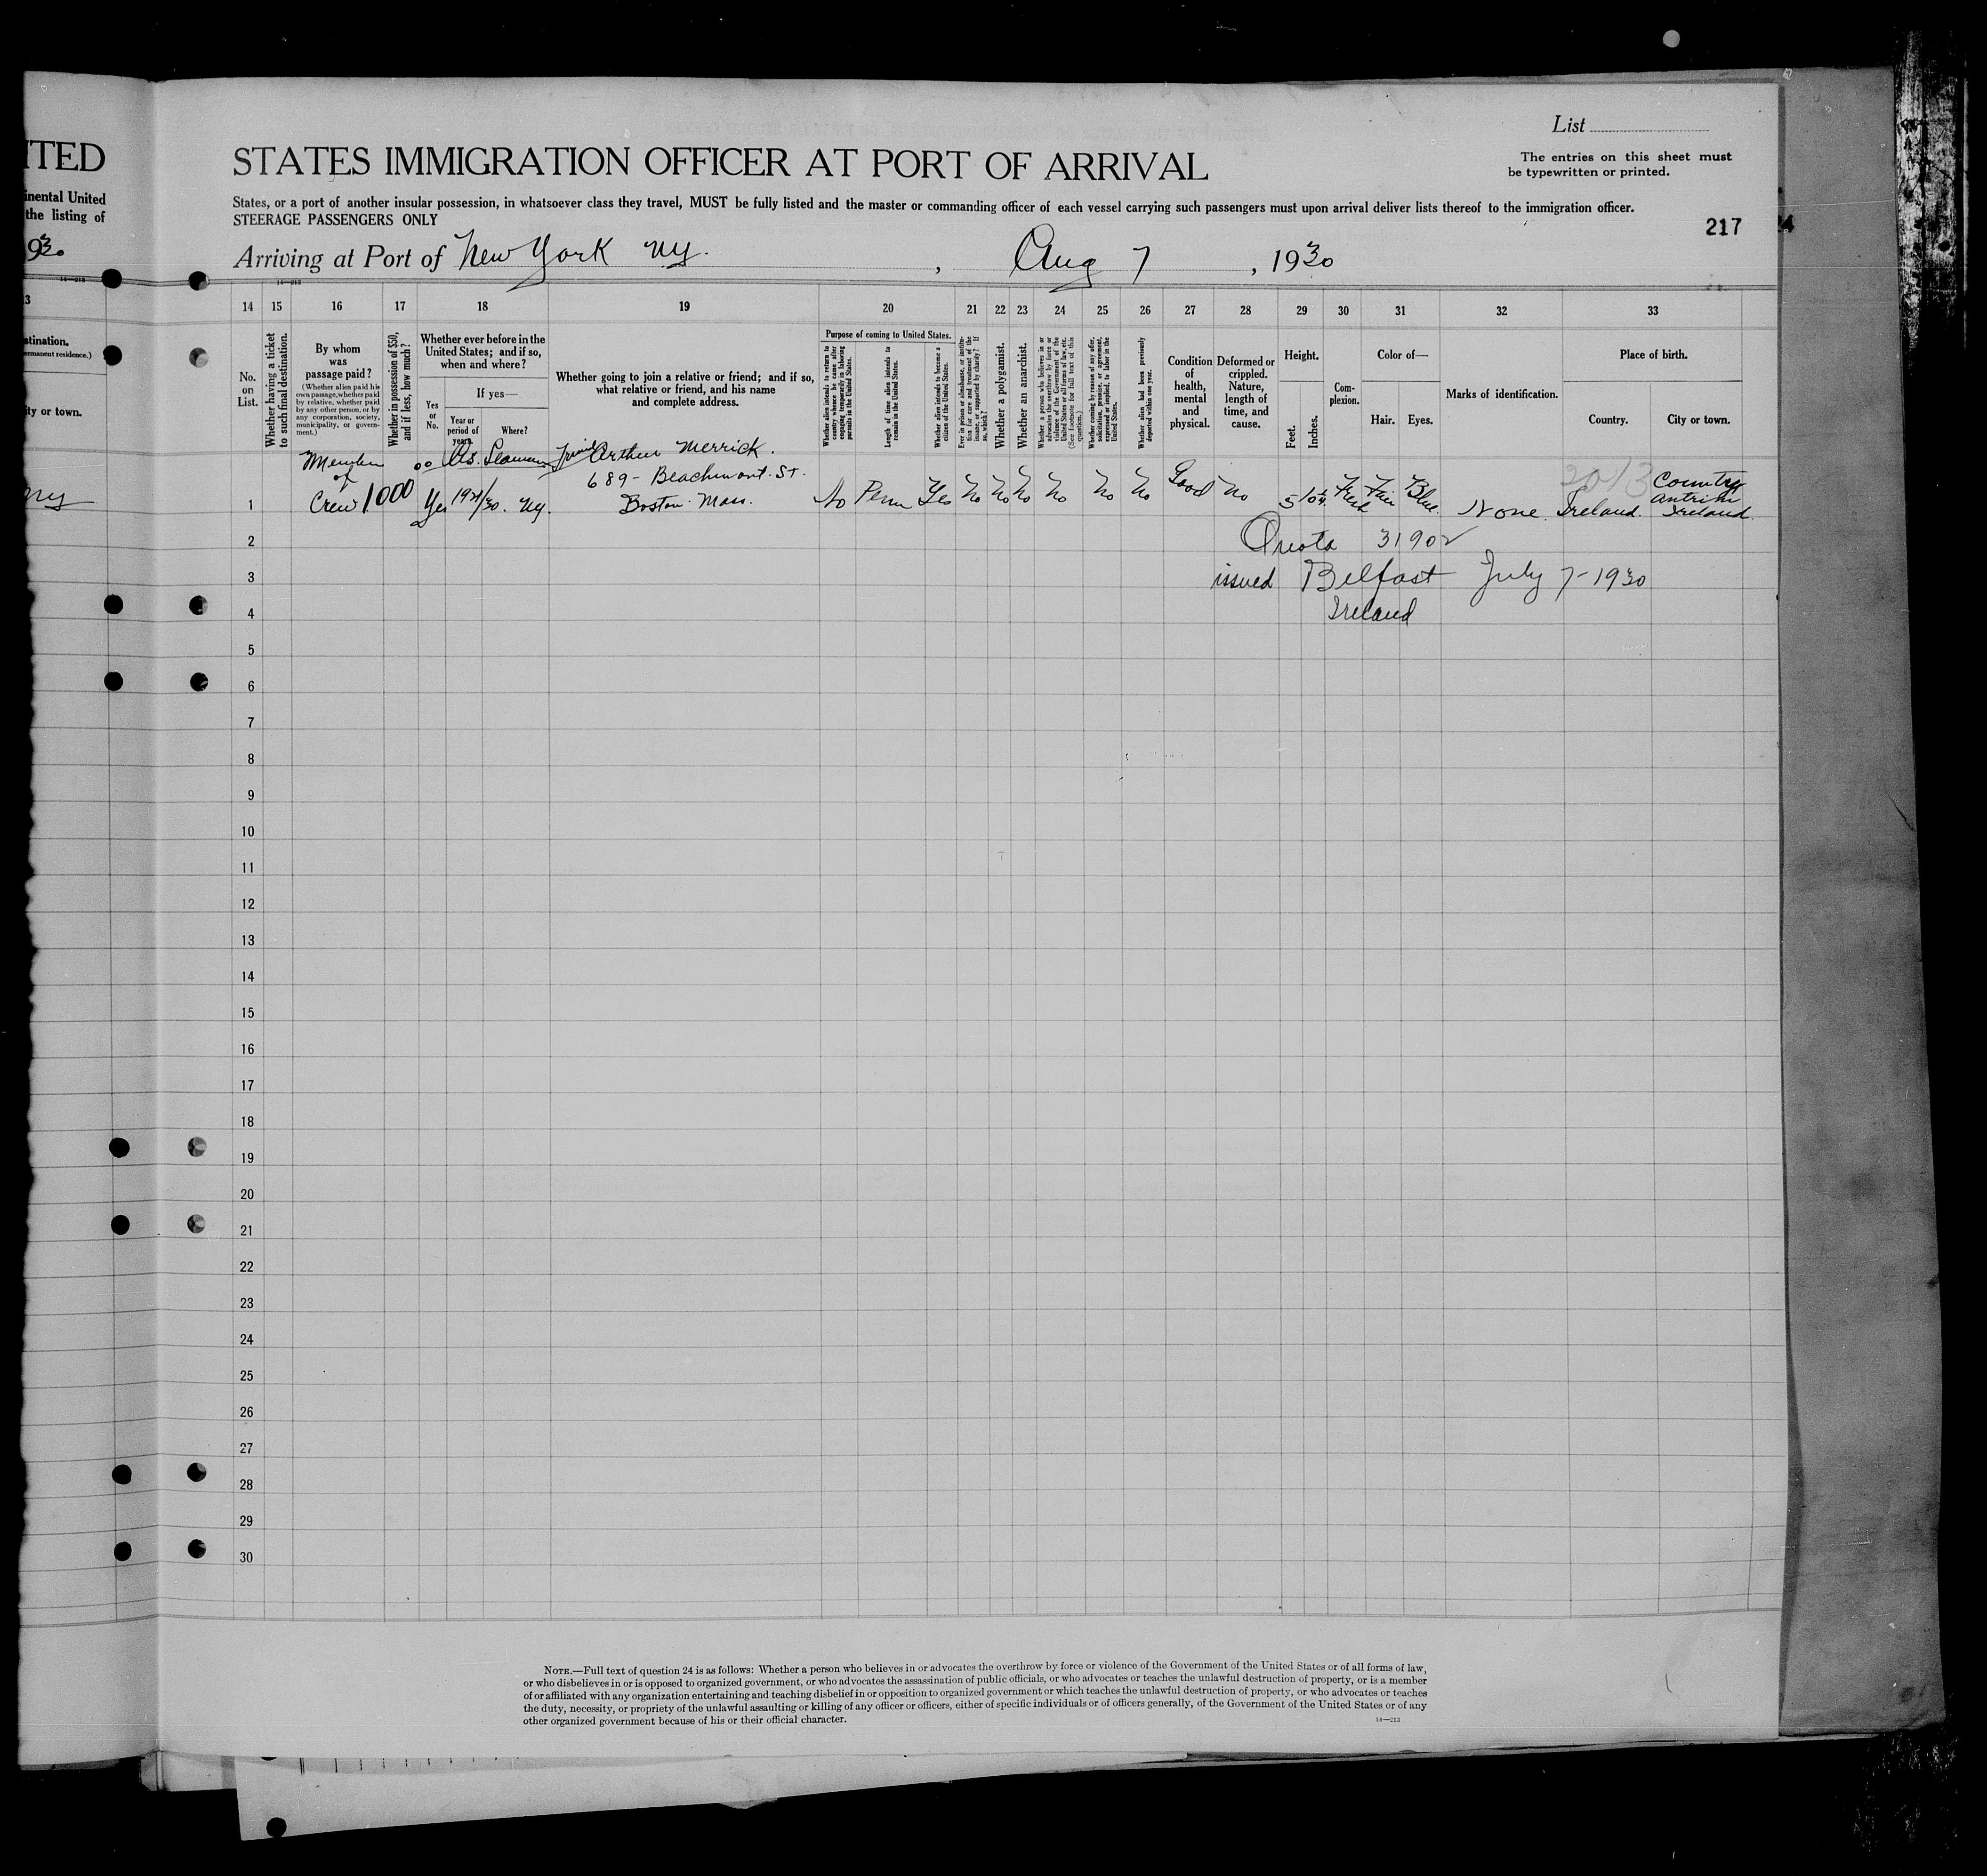 ITED
inental United
the listing of
930
14—213
3
stination.
ermanent residence.)
ity or town.
ny
List
STATES IMMIGRATION OFFICER AT PORT OF ARRIVAL
The entries on this sheet must
be typewritten or printed.
States, or a port of another insular possession, in whatsoever class they travel, MUST be fully listed and the master or commanding officer of each vessel carrying such passengers must upon arrival deliver lists thereof to the immigration officer.
STEERAGE PASSENGERS ONLY
217
Arriving at Port of New York NY. , Aug 7 , 1930
14—213
14 15 16 17 18 19 20 21 22 23 24 25 26 27 28 29 30 31 32 33
No. on List.
Whether having a ticket to such final destination.
By whom was passage paid?
(Whether alien paid his own passage, whether paid by relative, whether paid by any other person, or by any corporation, society, municipality, or government.)
Whether in possession of $50, and if less, how much?
Whether ever before in the United States; and if so, when and where?
Yes or No.
If yes—
Year or period of years.
Where?
Whether going to join a relative or friend; and if so, what relative or friend, and his name and complete address.
Purpose of coming to United States.
Whether alien intends to return to country whence he came after engaging temporarily in laboring pursuits in the United States.
Length of time alien intends to remain in the United States.
Whether alien intends to become a citizen of the United States.
Ever in prison or almshouse, or institution for care and treatment of the insane, or supported by charity? If so, which?
Whether a polygamist.
Whether an anarchist.
Whether a person who believes in or advocates the overthrow by force or violence of the Government of the United States or all forms of law, etc. (See footnote for full text of this question.)
Whether coming by reason of any offer, solicitation, promise, or agreement, expressed or implied, to labor in the United States.
Whether alien had been previously deported within one year.
Condition of health, mental and physical.
Deformed or crippled. Nature, length of time, and cause.
Height.
Feet. Inches.
Complexion.
Color of—
Hair. Eyes.
Marks of identification.
Place of birth.
Country. City or town.
Member As. Seaman Friend Arthur Merrick.
of 689 - Beachmont. St.
1 Crew 1000 Yes 1924/30. Ny. Boston. Mass. No Perm Yes No No No No No No Good No 5 10 Fresh Fair Blue. None. Ireland. Country Antrim Ireland
2 Quota 31902
3 issued Belfast July 7-1930
4 Ireland
5
6
7
8
9
10
11
12
13
14
15
16
17
18
19
20
21
22
23
24
25
26
27
28
29
30
NOTE.—Full text of question 24 is as follows: Whether a person who believes in or advocates the overthrow by force or violence of the Government of the United States or of all forms of law,
or who disbelieves in or is opposed to organized government, or who advocates the assassination of public officials, or who advocates or teaches the unlawful destruction of property, or is a member
of or affiliated with any organization entertaining and teaching disbelief in or opposition to organized government or which teaches the unlawful destruction of property, or who advocates or teaches
the duty, necessity, or propriety of the unlawful assaulting or killing of any officer or officers, either of specific individuals or of officers generally, of the Government of the United States or of any
other organized government because of his or their official character.
14—213